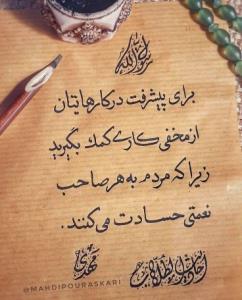 رسول الله
برای پیشرفت در کارهایتان
از مخفی کاری کمک بگیرید
زیرا که مردم به هر صاحب
نعمتی حسادت می‌کنند.
@MAHDIPOURASKARI